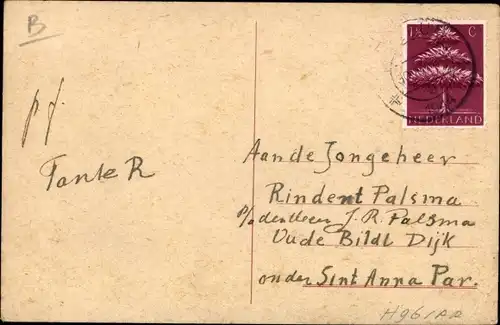 B
1½ C
NEDERLAND
p.f.
Tante R
Aan de Jongeheer
Rindert Palsma
p/a den Heer J. R. Palsma
Oude Bildt Dijk
onder Sint Anna Par.
H96/AA